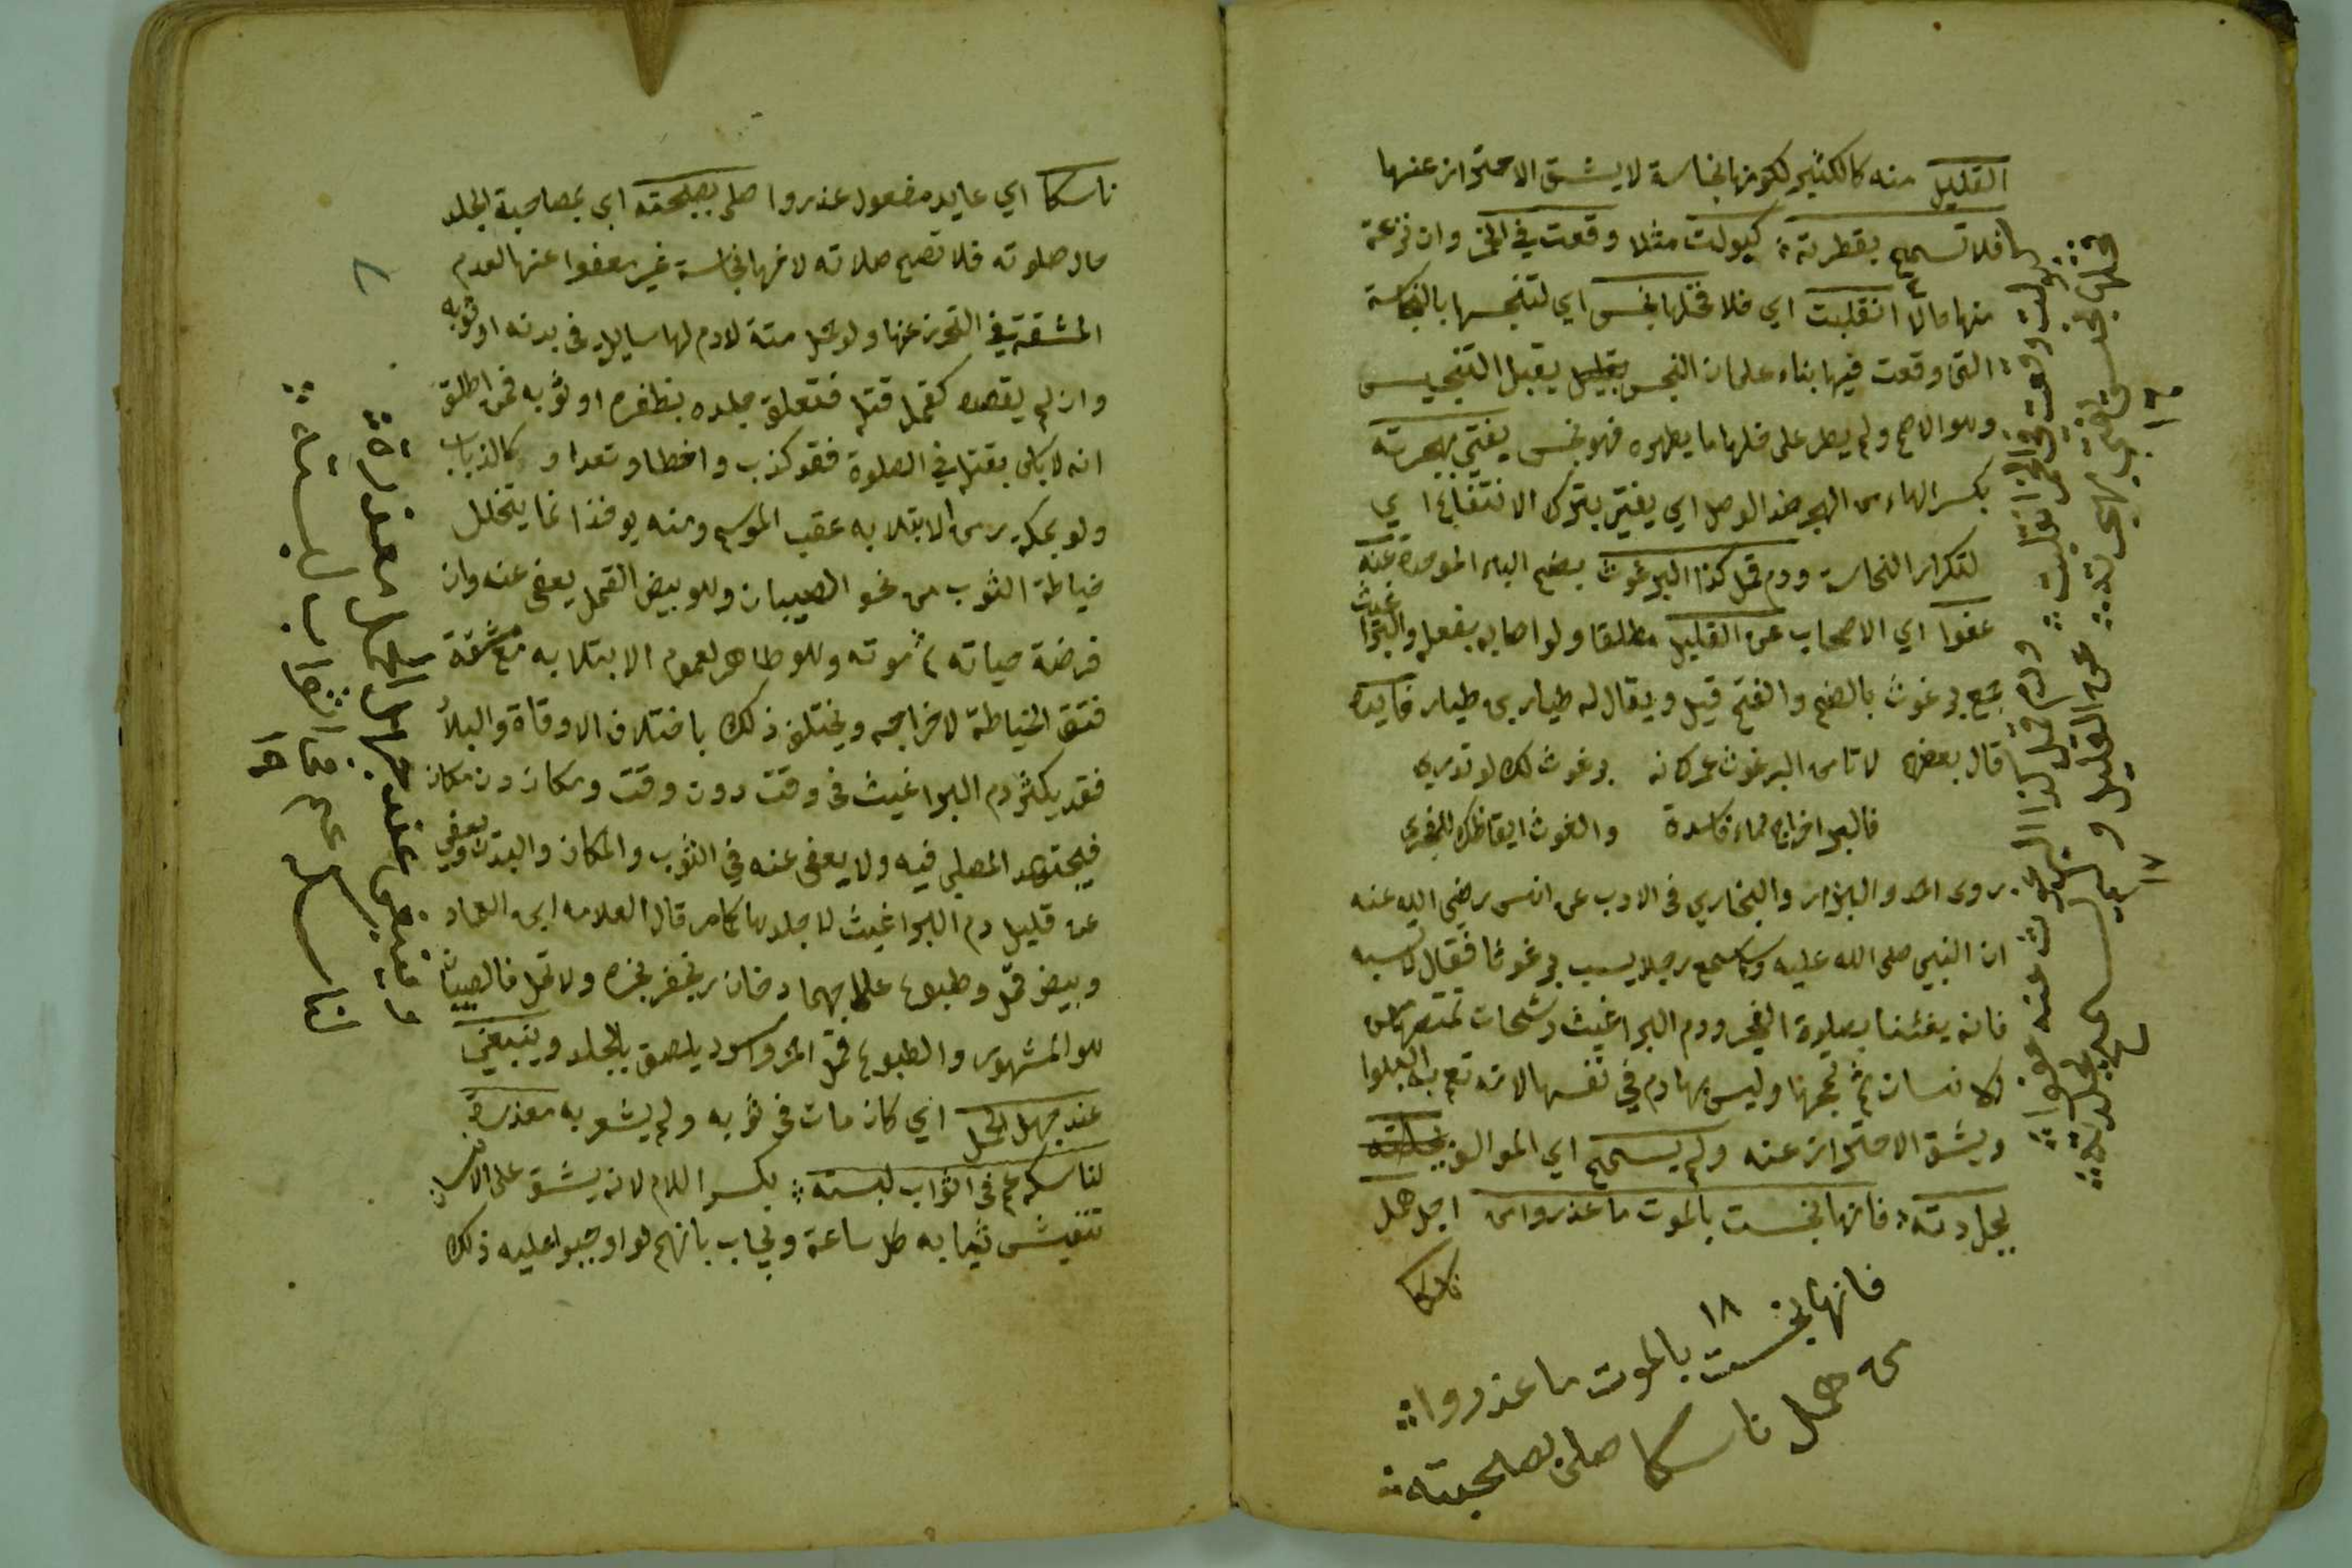 القليل منه كالكثير لكونها نجاسة لا يشق الاحتراز عنها
فلا تسمح بقطرته كبولت مثلا وقعت في الخمر وان نزعت
منها حالا انقلبت اي فلا فخلها نجس اي لتنجسها بالنجاسة
التي وقعت فيها بناء على ان النجس يقبل التنجيس
وهو الاصح ولم يطر على خلها ما يطهره فهو نجس يفتى بهجرته
بكسر الهاء من الهجر ضد الوصل اي يفتى بترك الانتفاع اي
لتكرار النجاسة ودم قمل كذا البرغوث بضم الباء الموحدة عنه
عفوا اي الاصحاب عن القليل مطلقا ولو اصابه بفعله والبراغيث
جمع برغوث بالضم والفتح قليل ويقال له طيار بن طيار فايدة
قال بعضهم لا تامن البرغوث عركانه برغوث لك لو تدري
فالبر اخراج دماء فاسدة والغوث ايقاظك للفجر
روى احمد والبزار والبخاري في الادب عن انس رضي الله عنه
ان النبي صلى الله عليه وسلم سمع رجلا يسب برغوثا فقال لا تسبه
فانه يغثنا بصلوة الفجر ودم البراغيث رشحات تمتصها من
الانسان ثم تمجها وليس لها دم في نفسها لانه تعم به البلوا
ويشق الاحتراز عنه ولم يسمح اي المو الف
لجلدته فانها نجست بالموت ما عذروا من اجل حمل
ناسكا
فانها نجست بالموت ما عذروا
١٨
من حمل ناسكا صلى بصحبته
بولت وقعت في الخمر انقلبت ودم قمل كذا البرغوث عنه عفوا
فخلها نجس يفتى بهجرته عن القليل ولم يسمح لجلدته
١٦
١٧
ناسكا اي عابد مفعول عذروا صلى بصحبته اي بمصاحبة الجلد
حال صلوته فلا تصح صلاته لانها نجاسة غير معفوا عنها لعدم
المشقة في التحرز عنها ولو حمل ميتة لا دم لها سايل في بدنه او ثوبه
وان لم يقصد كقمل قتله فتعلق جلده بظفره او ثوبه فمن اطلق
انه لا باس بقتله في الصلوة فقد كذب واخطا وتعدا وكالذباب
ولو بمكة زمن الابتلا به عقب الموسم ومنه يوخذ انما يتخلل
خياطة الثوب من نحو الصيبان وهو بيض القمل يعفى عنه وان
فرضت حياته ثم موته وهو ظاهر لعموم الابتلا به مع مشقة
فتق الخياطة لاخراجه ويختلف ذلك باختلاف الاوقاة والبلاد
فقد يكثر دم البراغيث في وقت دون وقت ومكان دون مكان
فيجتهد المصلي فيه ولا يعفى عنه في الثوب والمكان والبدن ويعفي
عن قليل دم البراغيث لا جلدها كما مر قال العلامه ابن العماد
وبيض قمل وطبوع على فان يخفر بخره ولا تمل فالصيبان
هو المشهور والطبوع قمل احمر واسود يلصق بالجلد وينبغي
عند جهل الحمل اي كان مات في ثوبه ولم يشعر به معذرة
لناسكه عم في اثواب لبسته بكسر اللام لانه يشق على الانسان
تفتيش ثيابه كل ساعة ويجاب بانهم لو اوجبوا عليه ذلك
٨
وينبغي عند جهل الحمل معذرة
لناسكه عم في اثواب لبسته
١٩